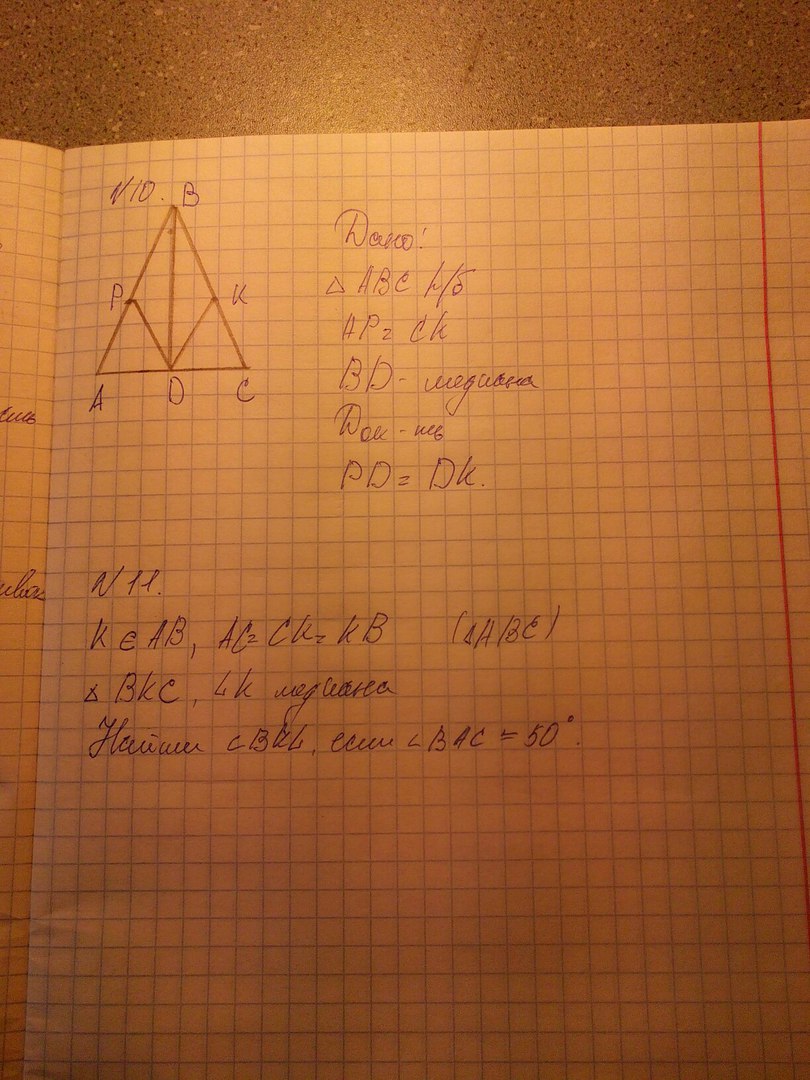 N10.
B
P
K
A
D
C
Дано:
△ ABC р/б
AP = CK
BD - медиана
Док-ть
PD = DK.
N 11.
K ∈ AB, AC = CK = KB (△ABC)
△ BKC, LK медиана
Найти ∠BKL, если ∠BAC = 50°.